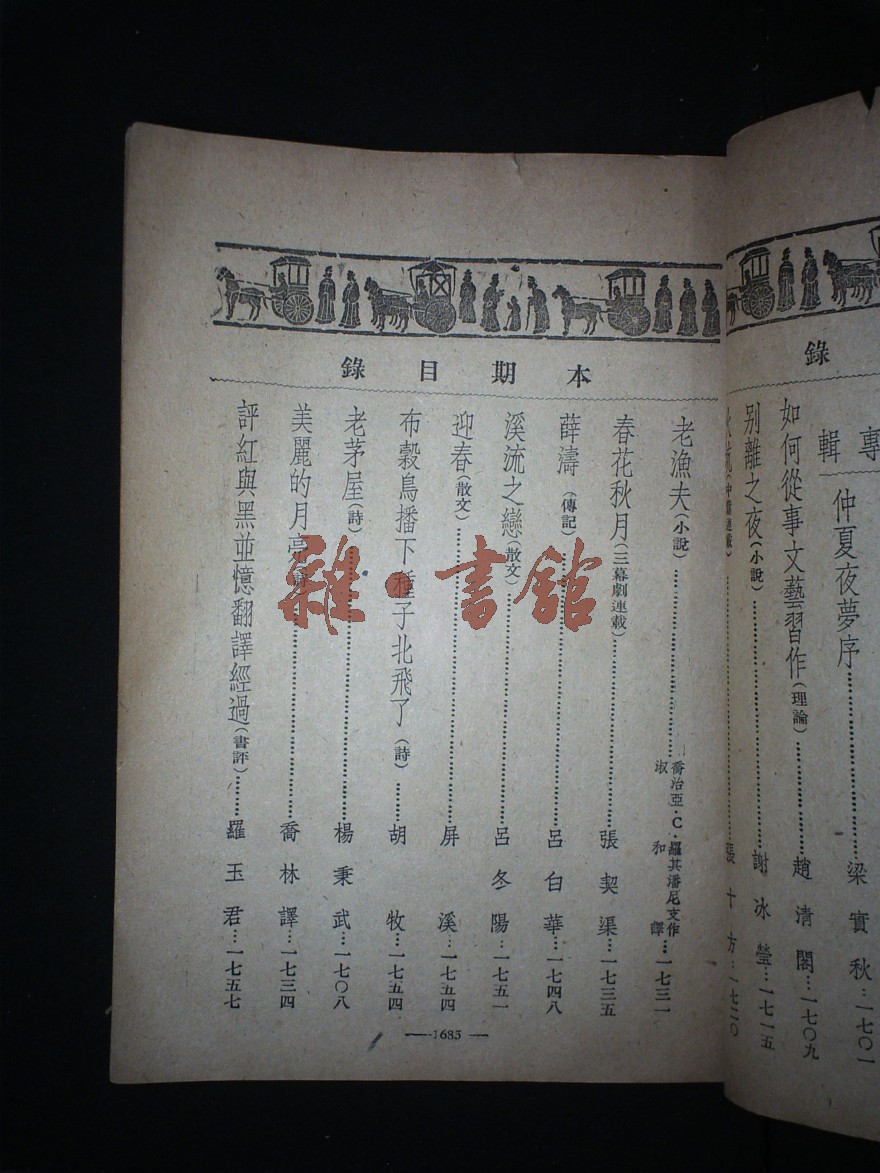 錄
專輯
仲夏夜夢序……梁實秋…一七〇一
如何從事文藝習作(理論)……趙清閣…一七〇九
別離之夜(小說)……謝冰瑩…一七一五
(中篇連載)……張十方…一七二〇
本期目錄
老漁夫(小說)……喬治亞·C·羅其潘尼支作 淑和譯…一七三一
春花秋月(三幕劇連載)……張契渠…一七三五
薛濤(傳記)……呂白華…一七四八
溪流之戀(散文)……呂冬陽…一七五一
迎春(散文)……屏溪…一七五四
布穀鳥播下種子北飛了(詩)……胡牧…一七五四
老茅屋(詩)……楊秉武…一七〇八
美麗的月亮……喬林譯…一七三四
評紅與黑並憶翻譯經過(書評)……羅玉君…一七五七
—1685—
雜·書館